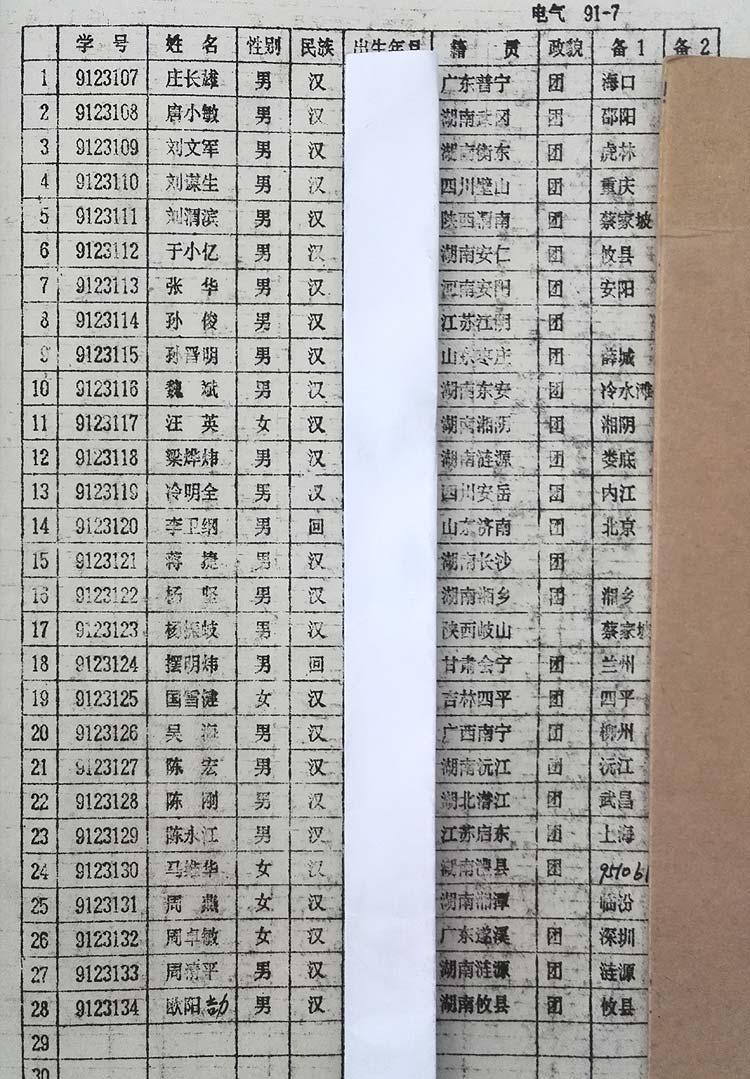 电气 91-7
学号 姓名 性别 民族 出生年月 籍贯 政貌 备1 备2
1 9123107 庄长雄 男 汉 广东普宁 团 海口
2 9123108 唐小敏 男 汉 湖南武冈 团 邵阳
3 9123109 刘文军 男 汉 湖南衡东 团 虎林
4 9123110 刘谋生 男 汉 四川璧山 团 重庆
5 9123111 刘渭滨 男 汉 陕西渭南 团 蔡家坡
6 9123112 于小亿 男 汉 湖南安仁 团 攸县
7 9123113 张华 男 汉 河南安阳 团 安阳
8 9123114 孙俊 男 汉 江苏江阴 团
9 9123115 孙晋明 男 汉 山东枣庄 团 薛城
10 9123116 魏斌 男 汉 湖南东安 团 冷水滩
11 9123117 汪英 女 汉 湖南湘阴 团 湘阴
12 9123118 梁烨炜 男 汉 湖南涟源 团 娄底
13 9123119 冷明全 男 汉 四川安岳 团 内江
14 9123120 李卫纲 男 回 山东济南 团 北京
15 9123121 蒋捷 男 汉 湖南长沙 团
16 9123122 杨坚 男 汉 湖南湘乡 团 湘乡
17 9123123 杨振岐 男 汉 陕西岐山 蔡家坡
18 9123124 摆明炜 男 回 甘肃会宁 团 兰州
19 9123125 国雪健 女 汉 吉林四平 团 四平
20 9123126 吴海 男 汉 广西南宁 团 柳州
21 9123127 陈宏 男 汉 湖南沅江 团 沅江
22 9123128 陈刚 男 汉 湖北潜江 团 武昌
23 9123129 陈永江 男 汉 江苏启东 团 上海
24 9123130 马维华 女 汉 湖南澧县 团
25 9123131 周燕 女 汉 湖南湘潭 临汾
26 9123132 周卓敏 女 汉 广东遂溪 团 深圳
27 9123133 周清平 男 汉 湖南涟源 团 涟源
28 9123134 欧阳劼 男 汉 湖南攸县 团 攸县
29
30